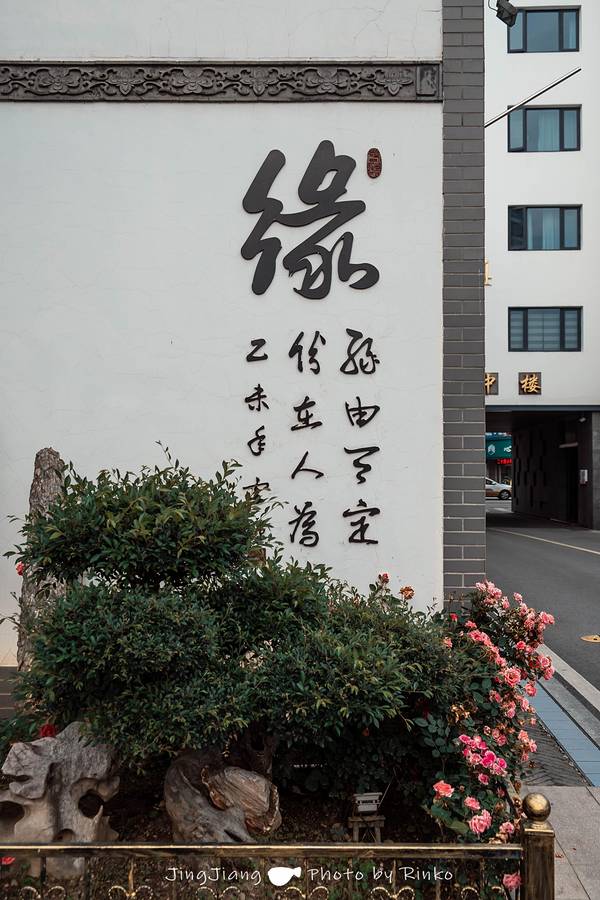 缘
缘由天定
份在人为
乙未年
中楼
JingJiang Photo by Rinko